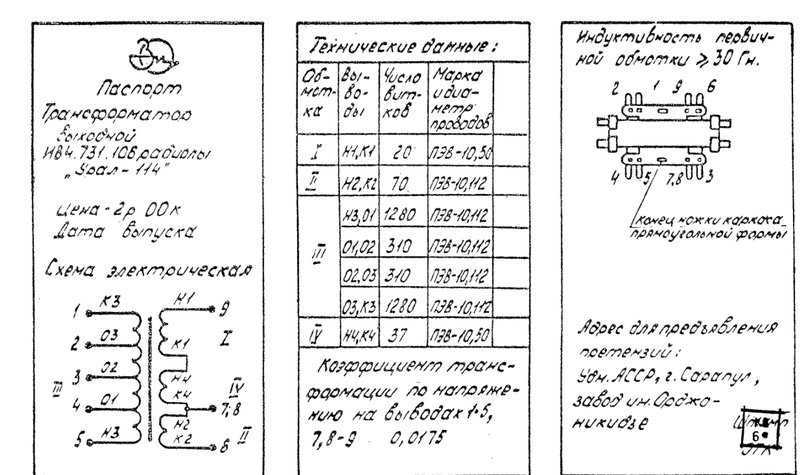 Паспорт
Трансформатор
выходной
ИВ4.731.106, радиолы
„Урал-114"
Цена-2р 00к
Дата выпуска
Схема электрическая
1 К3 Н1 9
К1 I
2 О3
3 О2 Н4
III К4 IV
4 О1 7,8
Н2
5 Н3 К2 6 II
Технические данные:
Об-мот-ка Вы-во-ды Число вит-ков Марка и диа-метр проводов
I Н1,К1 20 ПЭВ-10,50
II Н2,К2 70 ПЭВ-10,112
III Н3,01 1280 ПЭВ-10,112
01,02 310 ПЭВ-10,112
02,03 310 ПЭВ-10,112
03,К3 1280 ПЭВ-10,112
IV Н4,К4 37 ПЭВ-10,50
Коэффициент транс-
формации по напряже-
нию на выводах 1-5,
7,8-9 0,0175
Индуктивность первич-
ной обмотки ⩾ 30 Гн.
2 1 9 6
4 5 7,8 3
конец ножки каркаса
прямоугольной формы
Адрес для предъявления
претензий:
Удм. АССР, г. Сарапул,
завод им. Орджо-
никидзе